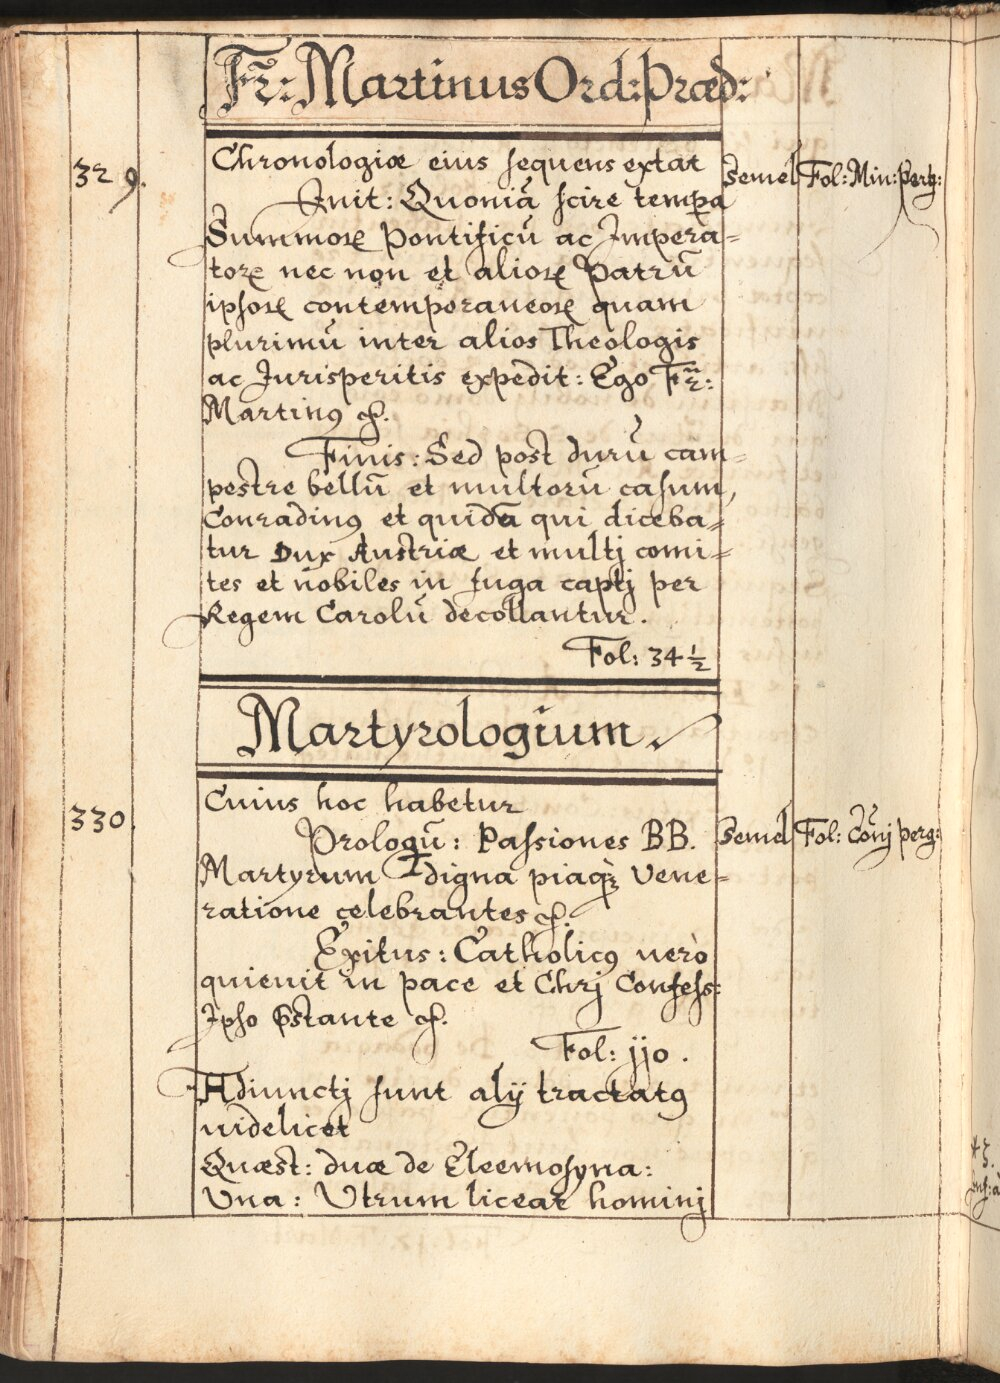 Fr: Martinus Ord: Præd:
329. Chronologiæ eius sequens extat Semel Fol: Min: perg:
Init: Quoniā scire tempa
Summoꝝ Pontificū ac Impera=
toꝝ nec non et alioꝝ Patrū
ipsoꝝ contemporaneoꝝ quam
plurimū inter alios Theologis
ac Jurisperitis expedit: Ego Fr:
Martinꝰ &.
Finis: Sed post durū cam=
pestre bellū et multorū casum,
Conradinꝰ et quidā qui diceba=
tur Dux Austriæ et multj comi=
tes et nobiles in fuga captj per
Regem Carolū decollantur.
Fol: 34 ½
Martyrologium.
330. Cuius hoc habetur
Prologū: Passiones BB. Semel Fol: Coṁj perg:
Martyrum digna piaqꝫ vene=
ratione celebrantes &.
Exitus: Catholicꝰ verò
quievit in pace et Chrj Confess:
Ipso p̄stante &.
Fol: jjo.
Adiunctj sunt alij tractatꝰ
videlicet
Quæst: duæ de Eleemosyna:
Una: Utrum liceat hominj